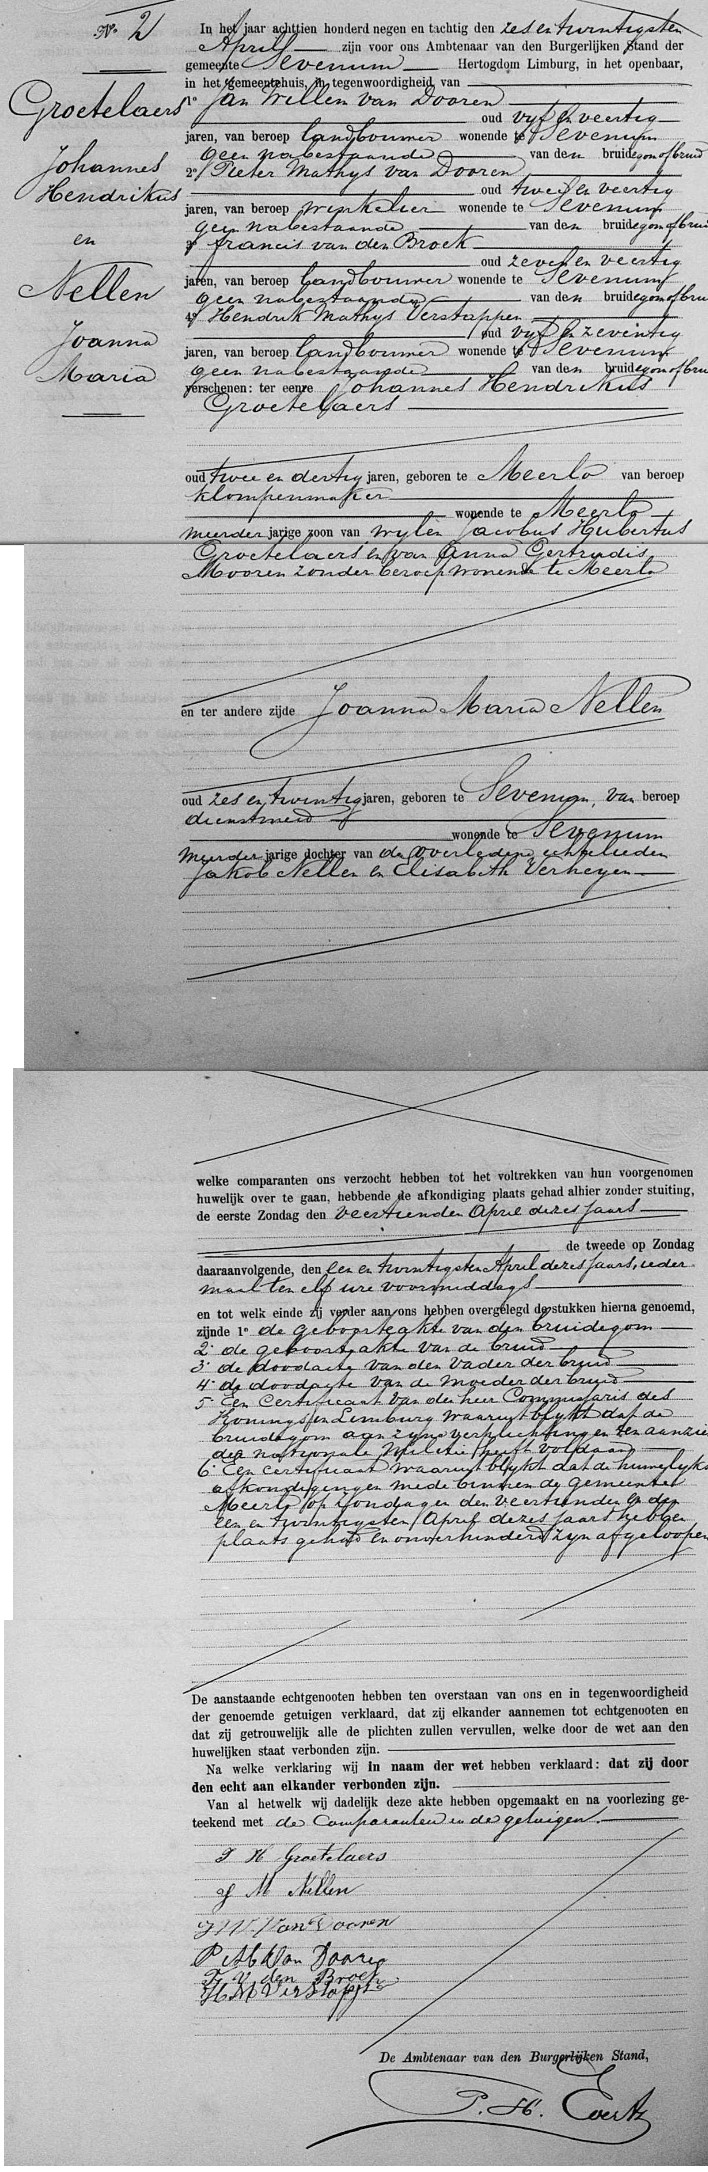 No 2
Groetelaers
Johannes
Hendrikus
en
Nellen
Joanna
Maria
In het jaar achttien honderd negen en tachtig den zes en twintigsten
April zijn voor ons Ambtenaar van den Burgerlijken Stand der
gemeente Sevenum Hertogdom Limburg, in het openbaar,
in het gemeentehuis, in tegenwoordigheid van
1o Jan Willem van Dooren
oud vyf en veertig
jaren, van beroep landbouwer wonende te Sevenum
geen nabestaande van den bruidegom of bruid
2o Pieter Mathys van Dooren
oud twee en veertig
jaren, van beroep winkelier wonende te Sevenum
geen nabestaande van den bruidegom of brui
3o Francis van den Broek
oud zeven en veertig
jaren, van beroep landbouwer wonende te Sevenum
geen nabestaande van den bruidegom of bru
4o Hendrik Mathys Verstappen
oud vyf en zeventig
jaren, van beroep landbouwer wonende te Sevenum
geen nabestaande van den bruidegom of bru
verschenen: ter eenre Johannes Hendrikus
Groetelaers
oud twee en dertig jaren, geboren te Meerlo van beroep
klompenmaker
wonende te Meerlo
meerder jarige zoon van wylen Jacobus Hubertus
Groetelaers en van Anna Gertrudis
Mooren zonder beroep wonende te Meerlo
en ter andere zijde Joanna Maria Nellen
oud zes en twintig jaren, geboren te Sevenum, van beroep
dienstmeid
wonende te Sevenum
meerder jarige dochter van de overledene echtelieden
Jakob Nellen en Elisabeth Verheyen
welke comparanten ons verzocht hebben tot het voltrekken van hun voorgenomen
huwelijk over te gaan, hebbende de afkondiging plaats gehad alhier zonder stuiting,
de eerste Zondag den veertienden April dezes jaars
de tweede op Zondag
daaraanvolgende, den een en twintigsten April dezes jaars, ieder
maal ten elf ure voormiddags
en tot welk einde zij verder aan ons hebben overgelegd de stukken hierna genoemd,
zijnde 1o de geboorteakte van den bruidegom
2o de geboorteakte van de bruid
3o de doodacte van den vader der bruid
4o de doodacte van de moeder der bruid
5o Een certificaat van den heer Commissaris des
Konings in Limburg waaruit blykt dat de
bruidegom aan zyne verplichtingen ten aanzie
der nationale Militie heeft voldaan
6o Een certificaat waaruit blykt dat de huwelyks
afkondigingen mede binnen de gemeente
Meerlo op Zondagen den veertienden en den
een en twintigsten April dezes jaars hebben
plaats gehad en onverhinderd zyn afgeloopen
De aanstaande echtgenooten hebben ten overstaan van ons en in tegenwoordigheid
der genoemde getuigen verklaard, dat zij elkander aannemen tot echtgenooten en
dat zij getrouwelijk alle de plichten zullen vervullen, welke door de wet aan den
huwelijken staat verbonden zijn.
Na welke verklaring wij in naam der wet hebben verklaard: dat zij door
den echt aan elkander verbonden zijn.
Van al hetwelk wij dadelijk deze akte hebben opgemaakt en na voorlezing ge-
teekend met de Comparanten en de getuigen.
J H Groetelaers
J M Nellen
J W Van Dooren
P M Van Dooren
F V den Broek
H M Verstappe
De Ambtenaar van den Burgerlijken Stand,
P. H. Evertz